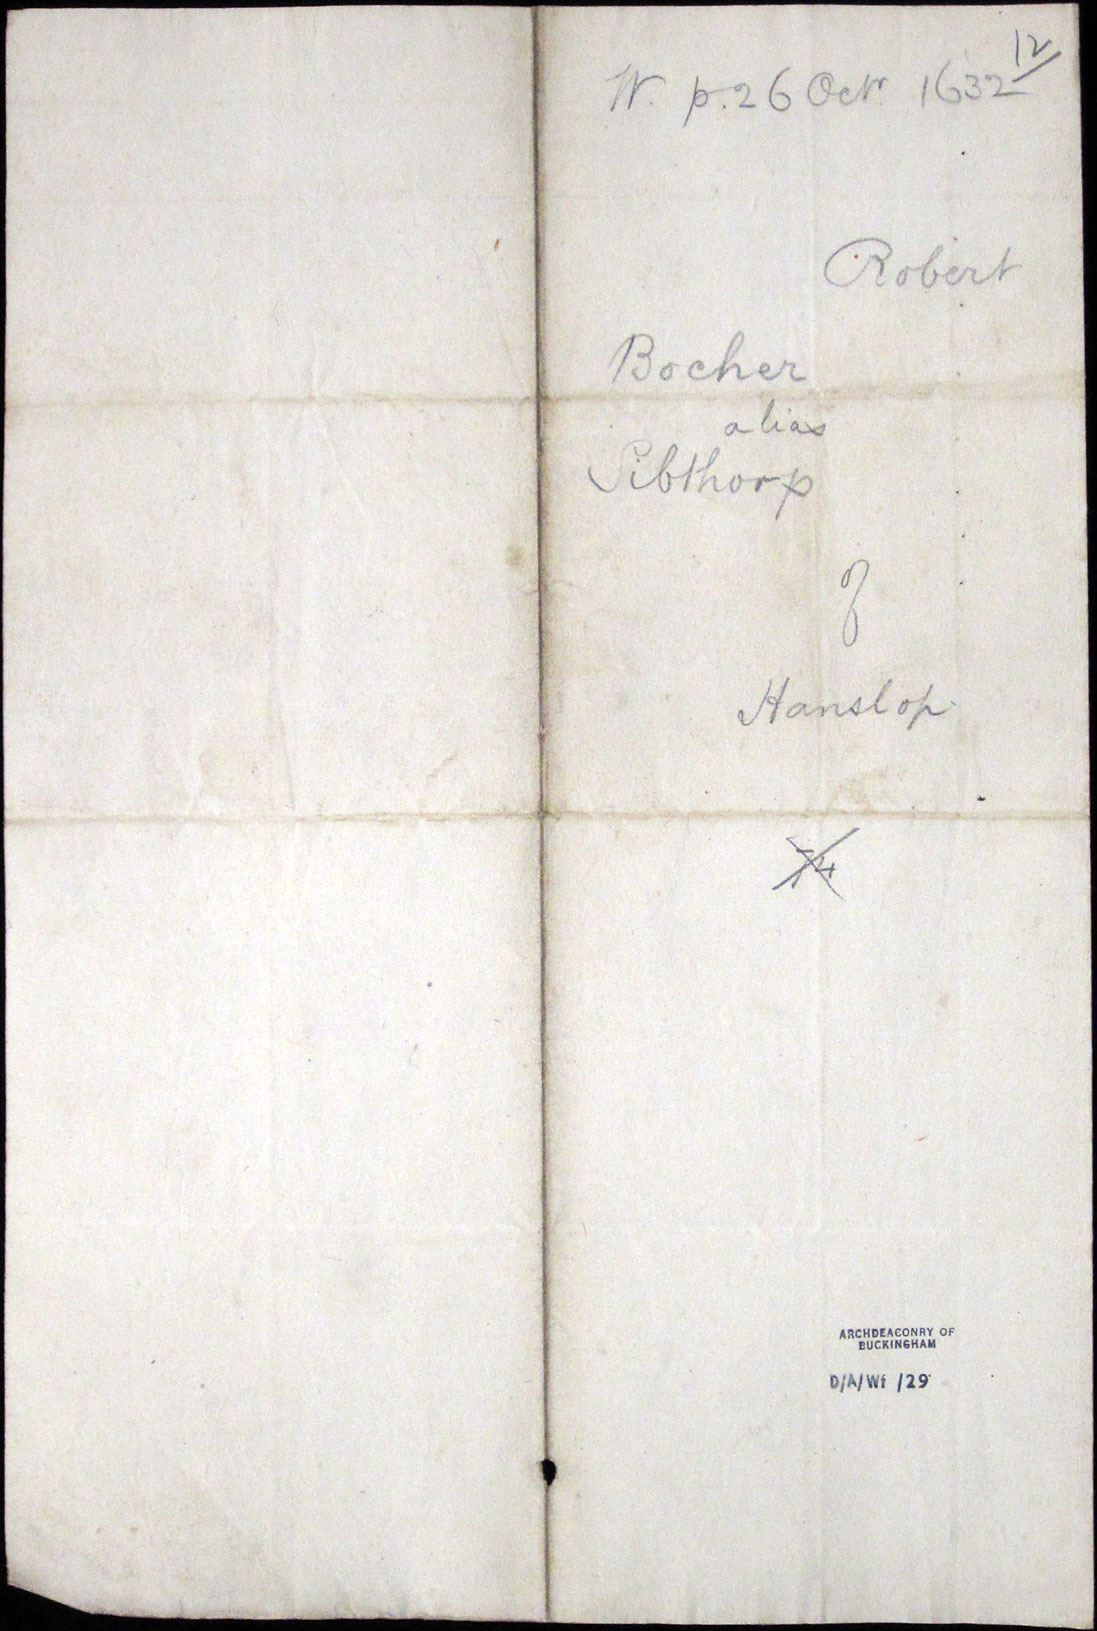 12
W. p. 26 Octr 1632
Robert
Bocher
alias
Sibthorp
of
Hanslop
74
ARCHDEACONRY OF
BUCKINGHAM
D/A/Wf /29